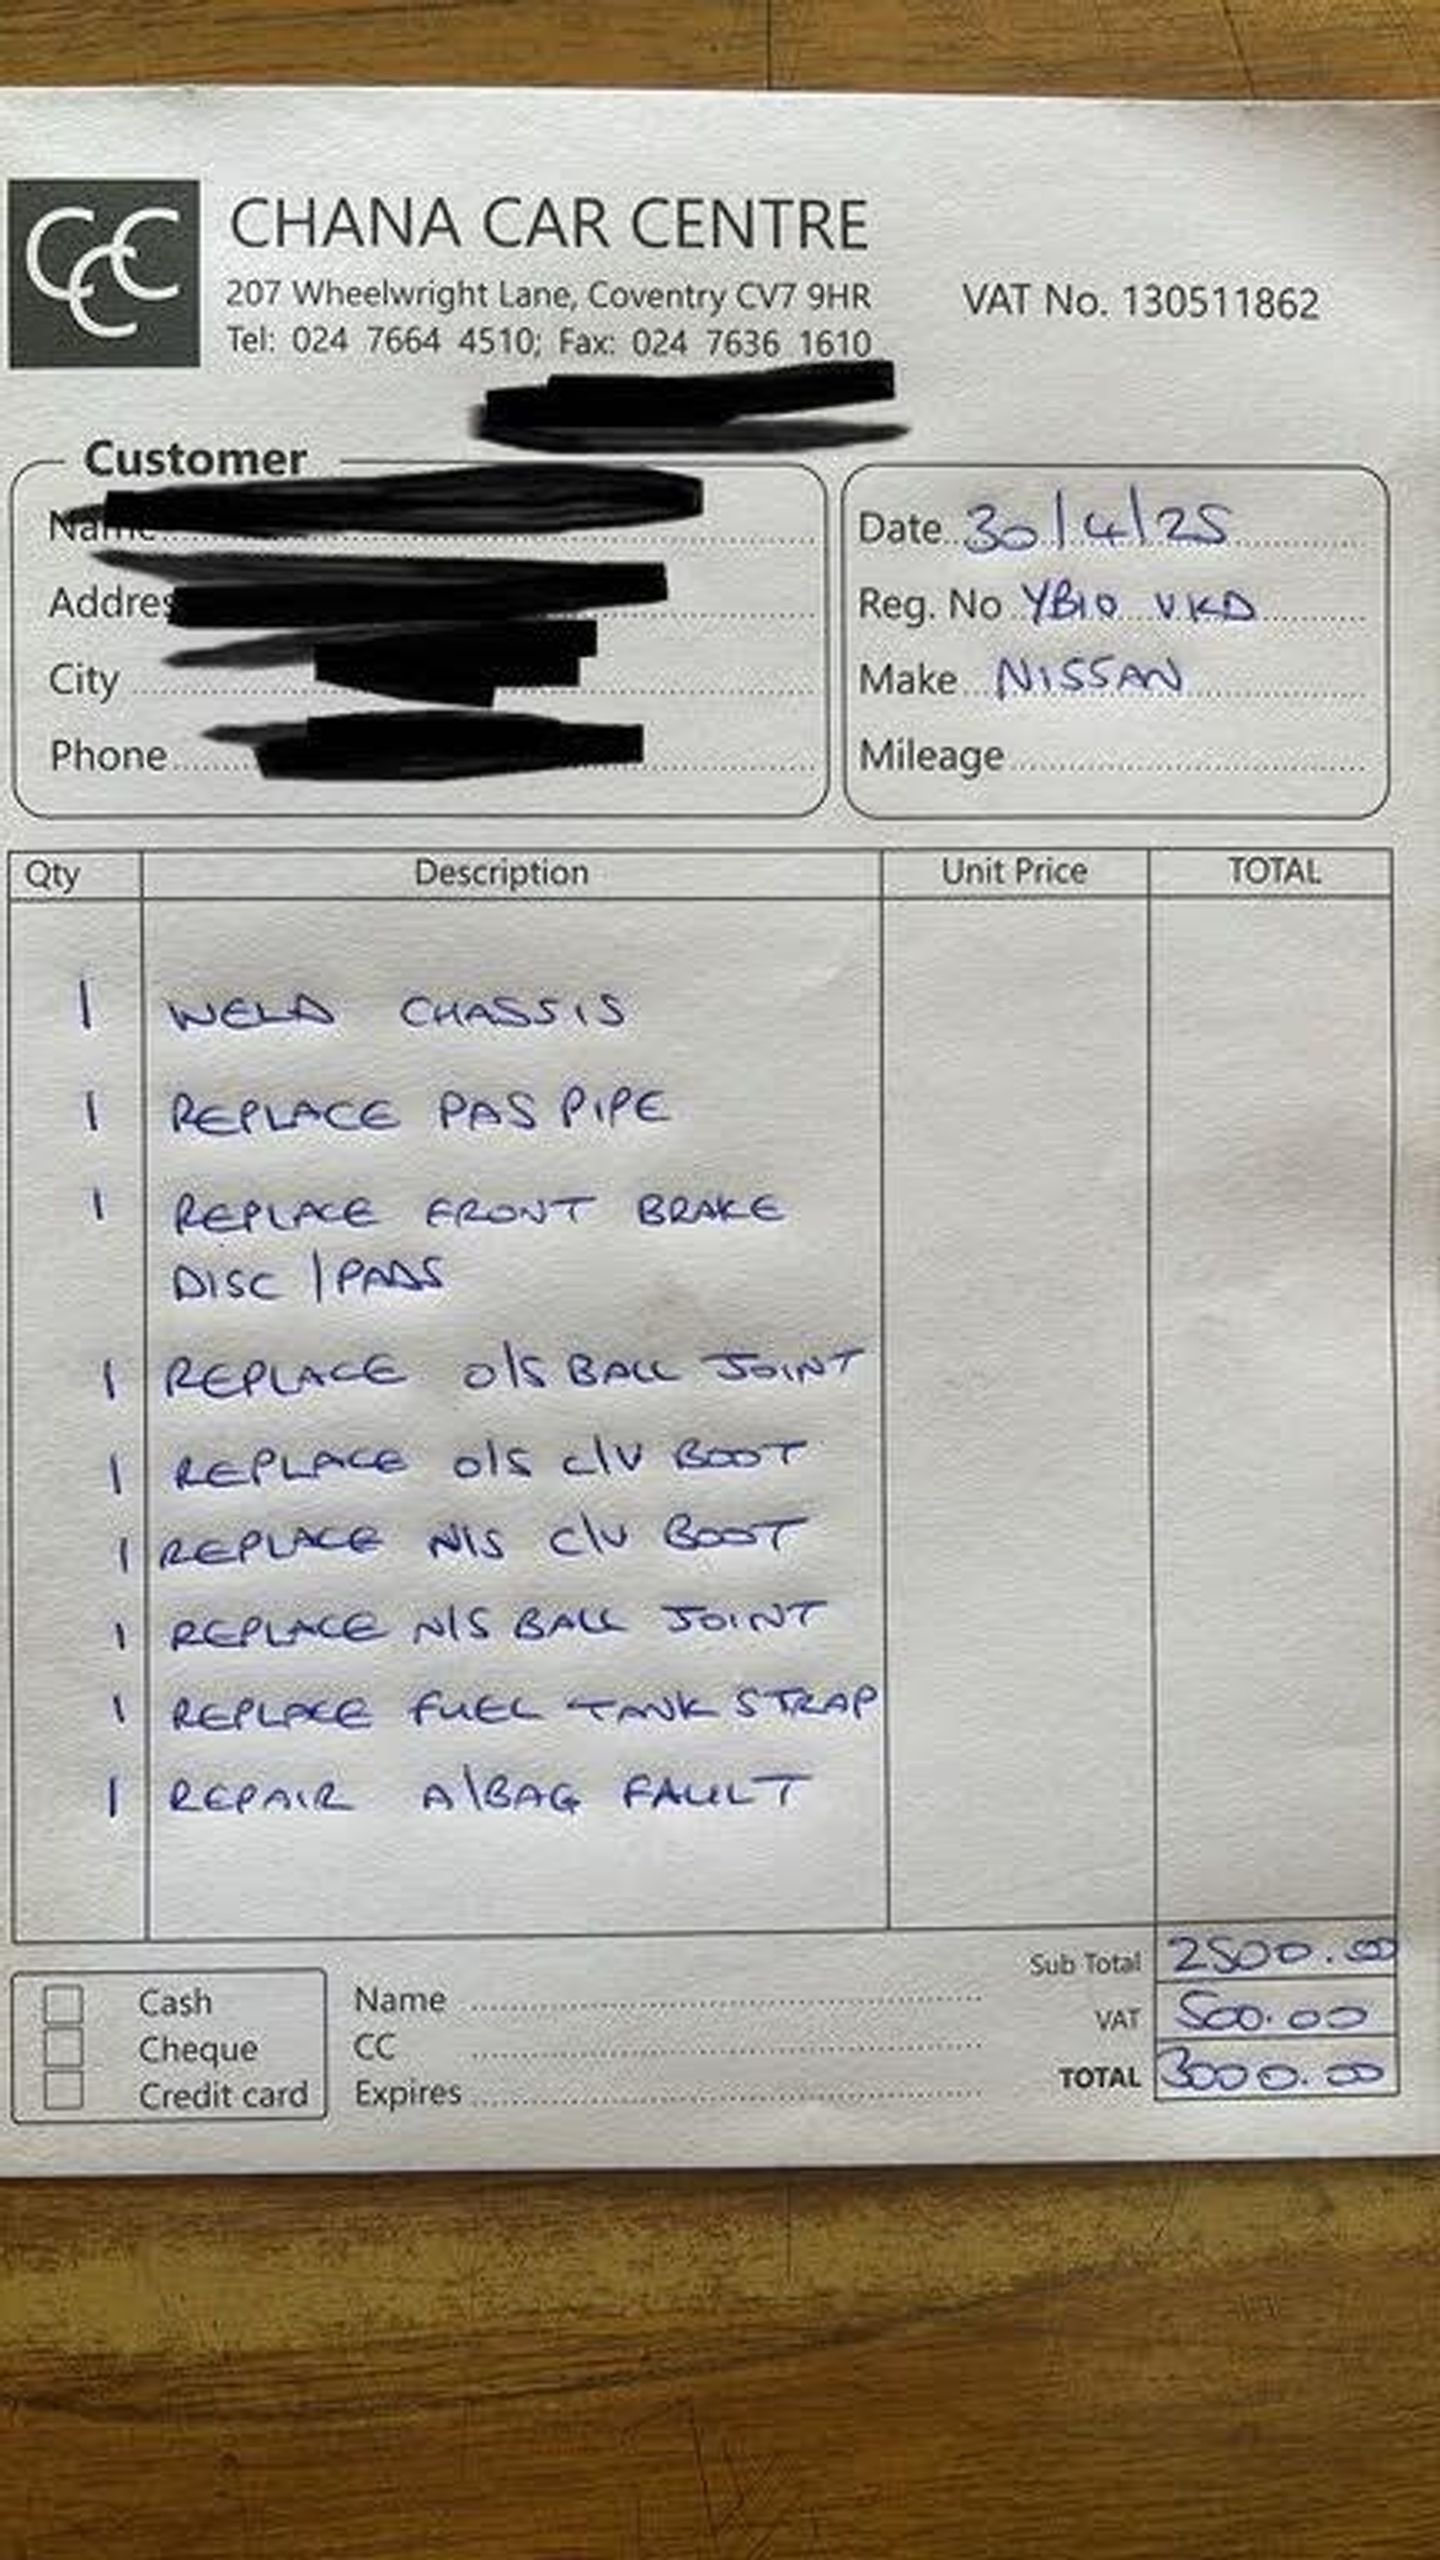 CCC
CHANA CAR CENTRE
207 Wheelwright Lane, Coventry CV7 9HR
VAT No. 130511862
Tel: 024 7664 4510; Fax: 024 7636 1610
Customer
Name
Addres
City
Phone
Date 30/4/25
Reg. No YB10 VKD
Make NISSAN
Mileage
Qty Description Unit Price TOTAL
1 WELD CHASSIS
1 REPLACE PAS PIPE
1 REPLACE FRONT BRAKE
DISC / PADS
1 REPLACE O/S BALL JOINT
1 REPLACE O/S C/V BOOT
1 REPLACE N/S C/V BOOT
1 REPLACE N/S BALL JOINT
1 REPLACE FUEL TANK STRAP
1 REPAIR A\BAG FAULT
Sub Total 2500.00
VAT 500.00
TOTAL 3000.00
Cash
Cheque
Credit card
Name
CC
Expires